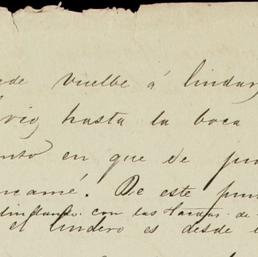 de vuelbe á lindar
hasta la boca
nto en que de
ncamé. De este pun
lindando con las tierras de
el lindero es desde